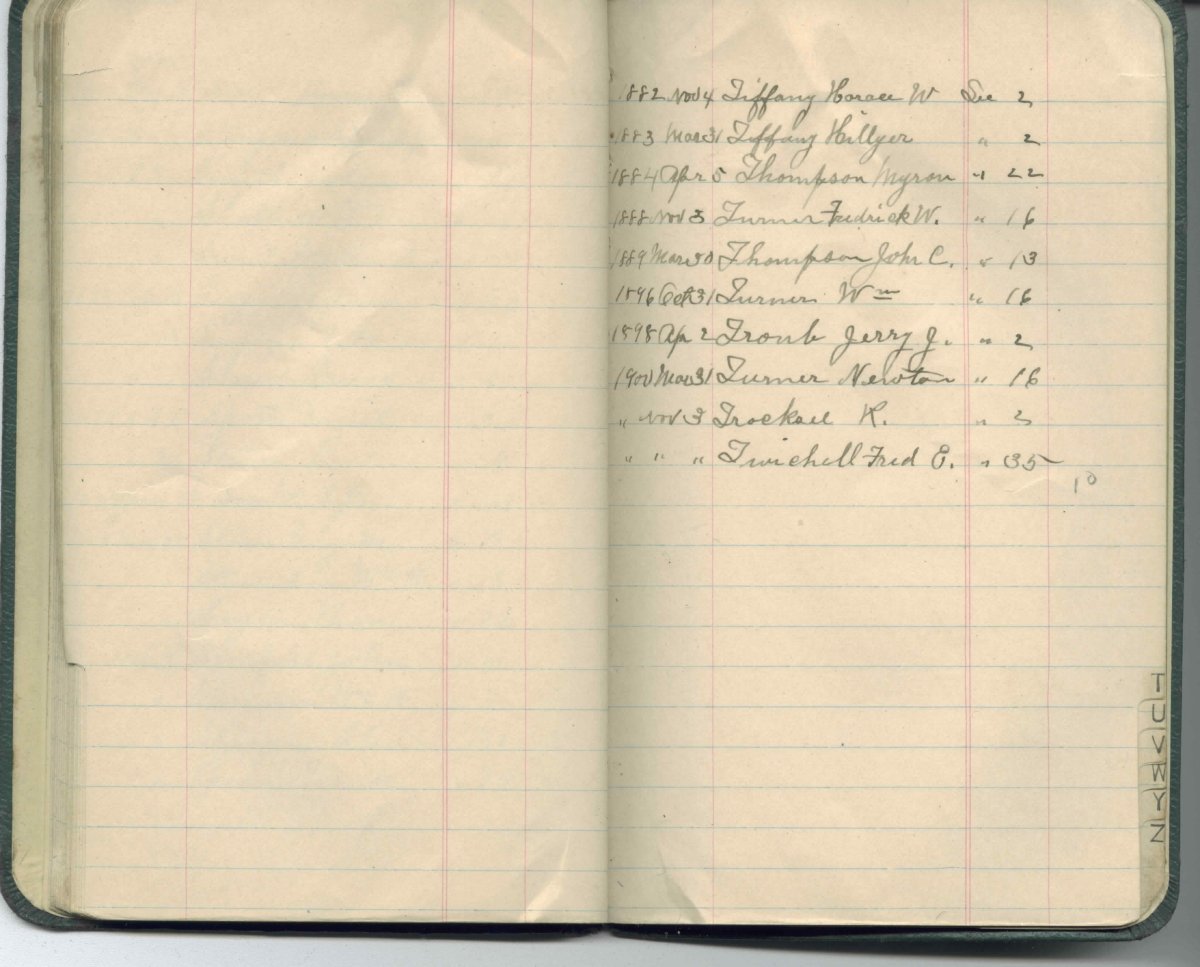 1882 Nov 4 Tiffany Horace W Sec 2
1883 Mar 31 Tiffany Hillyer " 2
1884 Apr 5 Thompson Myron " 22
1888 Nov 3 Turner Fredrick W. " 16
1889 Mar 30 Thompson John C. " 13
1896 Oct 31 Turner Wm " 16
1898 Apr 2 Jerry J. " 2
1900 Mar 31 Turner Newton " 16
" Nov 3 K. " 2
" " " Twichell Fred E. " 35
10
T
U
V
W
Y
Z